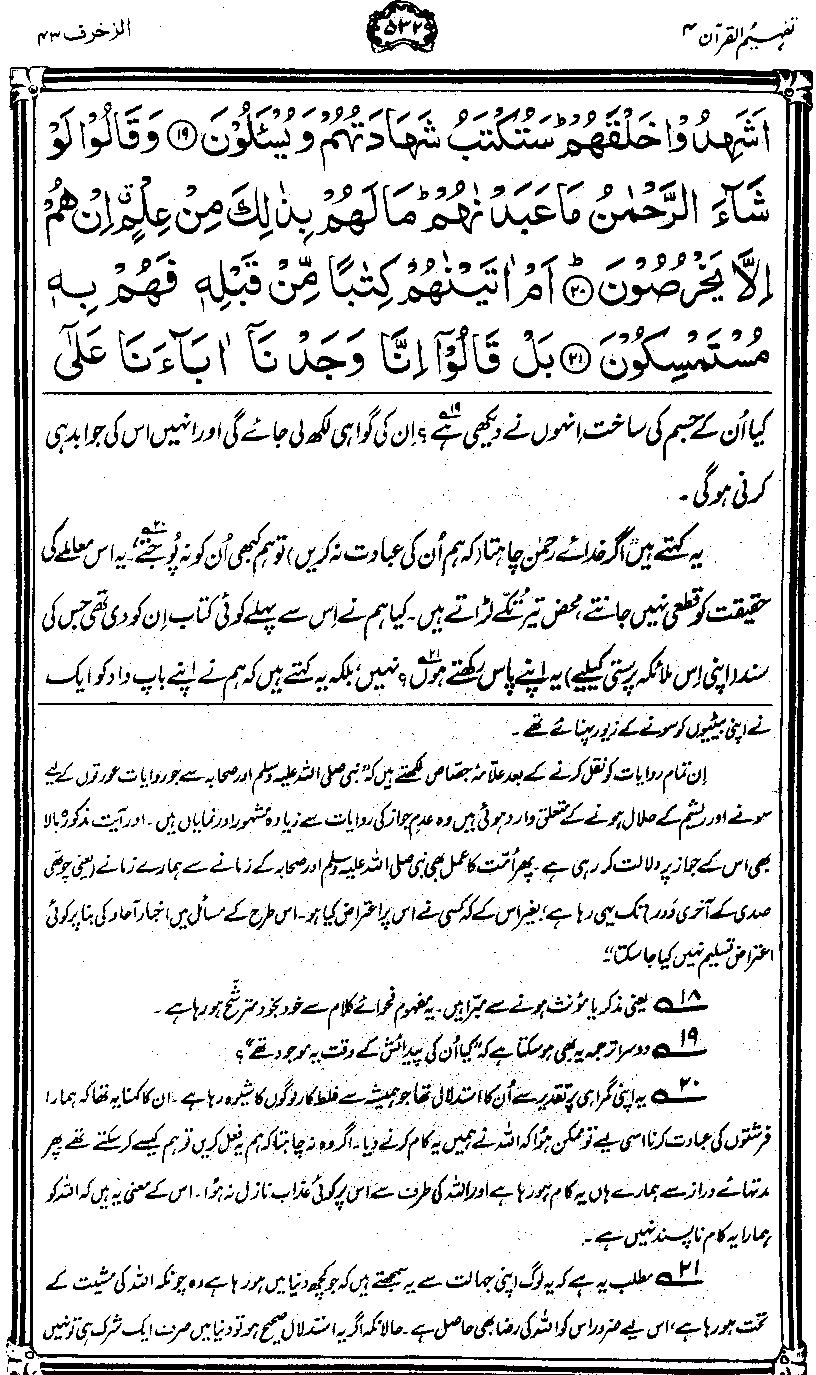 تفہیم القرآن ۴
۵۳۲
الزخرف ۴۳
اَشَهِدُوْا خَلْقَهُمْ ؕ سَتُكْتَبُ شَهَادَتُهُمْ وَيُسْـَٔلُوْنَ ﴿۱۹﴾ وَقَالُوْا لَوْ
شَآءَ الرَّحْمٰنُ مَا عَبَدْنٰهُمْ ؕ مَا لَهُمْ بِذٰلِكَ مِنْ عِلْمٍ ۗ اِنْ هُمْ
اِلَّا يَخْرُصُوْنَ ﴿۲۰﴾ؕ اَمْ اٰتَيْنٰهُمْ كِتٰبًا مِّنْ قَبْلِهٖ فَهُمْ بِهٖ
مُسْتَمْسِكُوْنَ ﴿۲۱﴾ بَلْ قَالُوْٓا اِنَّا وَجَدْنَآ اٰبَآءَنَا عَلٰٓى
کیا اُن کے جسم کی ساخت اِنہوں نے دیکھی ہے۱۹؟ اِن کی گواہی لکھ لی جائے گی اور انہیں اس کی جوابدہی
کرنی ہو گی۔
یہ کہتے ہیں ”اگر خدائے رحمٰن چاہتا (کہ ہم اُن کی عبادت نہ کریں) تو ہم کبھی اُن کو نہ پُوجتے۲۰“۔ یہ اس معاملے کی
حقیقت کو قطعی نہیں جانتے، محض تیر تُکّے لڑاتے ہیں۔ کیا ہم نے اِس سے پہلے کوئی کتاب اِن کو دی تھی جس کی
سند (اپنی اِس ملائکہ پرستی کیلیے) یہ اپنے پاس رکھتے ہوں۲۱؟ نہیں، بلکہ یہ کہتے ہیں کہ ہم نے اپنے باپ دادا کو ایک
نے اپنی بیٹیوں کو سونے کے زیور پہنائے تھے۔
اِن تمام روایات کو نقل کرنے کے بعد علامۂ جصاص لکھتے ہیں کہ ”نبی صلی اللہ علیہ وسلم اور صحابہ سے جو روایات عورتوں کے لیے
سونے اور ریشم کے حلال ہونے کے متعلق وارد ہوئی ہیں وہ عدمِ جواز کی روایات سے زیادہ مشہور اور نمایاں ہیں۔ اور آیت مذکورۂ بالا
بھی اس کے جواز پر دلالت کر رہی ہے۔ پھر اُمّت کا عمل بھی نبی صلی اللہ علیہ وسلم اور صحابہ کے زمانے سے ہمارے زمانے (یعنی چوتھی
صدی کے آخری دَور) تک یہی رہا ہے، بغیر اس کے کہ کسی نے اس پر اعتراض کیا ہو۔ اس طرح کے مسائل میں اخبار آحاد کی بنا پر کوئی
اعتراض تسلیم نہیں کیا جا سکتا“۔
۱۸ یعنی مذکر یا مؤنث ہونے سے مبرّا ہیں۔ یہ مفہوم فحوائے کلام سے خود بخود مترشّح ہو رہا ہے۔
۱۹ دوسرا ترجمہ یہ بھی ہو سکتا ہے کہ ”کیا اُن کی پیدائش کے وقت یہ موجود تھے“؟
۲۰ یہ اپنی گمراہی پر تقدیر سے اُن کا استدلال تھا جو ہمیشہ سے غلط کار لوگوں کا شیوہ رہا ہے۔ ان کا کہنا یہ تھا کہ ہمارا
فرشتوں کی عبادت کرنا اسی لیے تو ممکن ہُوا کہ اللہ نے ہمیں یہ کام کرنے دیا۔ اگر وہ نہ چاہتا کہ ہم یہ فعل کریں تو ہم کیسے کر سکتے تھے پھر
مدتہائے دراز سے ہمارے ہاں یہ کام ہو رہا ہے اور اللہ کی طرف سے اُس پر کوئی عذاب نازل نہ ہُوا۔ اس کے معنی یہ ہیں کہ اللہ کو
ہمارا یہ کام ناپسند نہیں ہے۔
۲۱ مطلب یہ ہے کہ یہ لوگ اپنی جہالت سے یہ سمجھتے ہیں کہ جو کچھ دنیا میں ہو رہا ہے وہ چونکہ اللہ کی مشیت کے
تحت ہو رہا ہے، اس لیے ضرور اس کو اللہ کی رضا بھی حاصل ہے۔ حالانکہ اگر یہ استدلال صحیح ہو تو دنیا میں صرف ایک شرک ہی تو نہیں